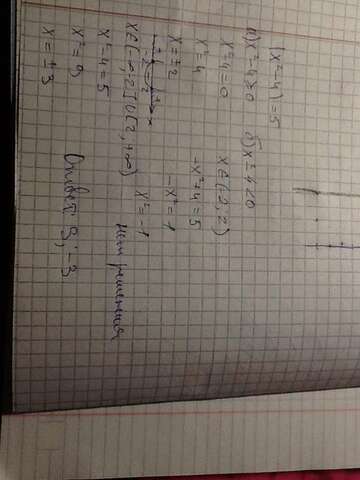 |x²-4|=5
а) x²-4≥0 б) x²-4<0
x²-4=0 x∈(-2;2)
x²=4 -x²+4=5
x=±2 -x²=1
+ -2 - 2 + x
x∈(-∞;-2]∪[2;+∞) x²=-1
x²-4=5 Нет решения
x²=9
x=±3 Ответ: 3; -3